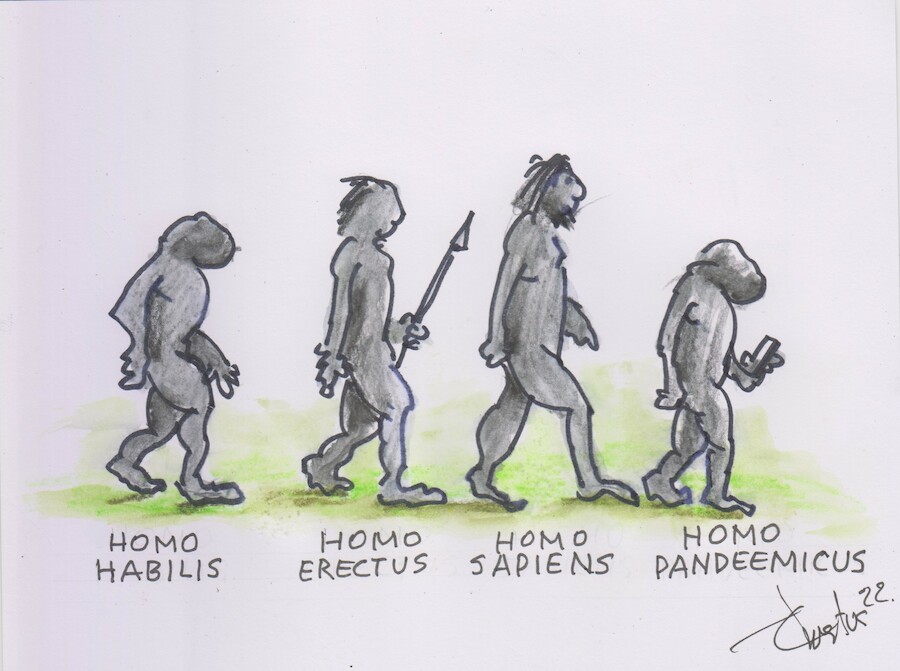 HOMO
HABILIS
HOMO
ERECTUS
HOMO
SAPIENS
HOMO
PANDEEMICUS
22.